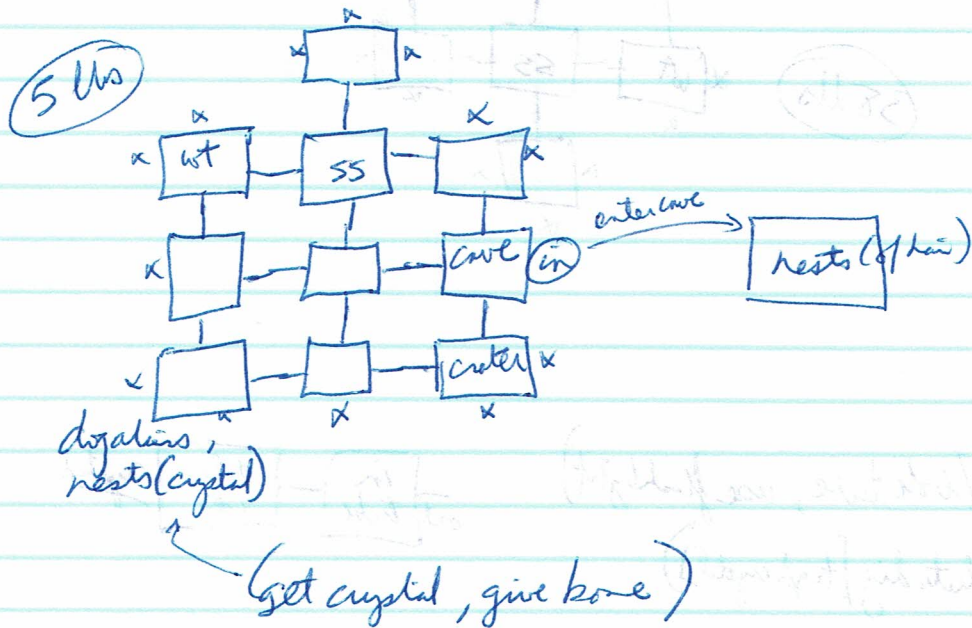 x
x x
5 Lbs
x x
x wt ss x
enter cave
x cave in nests (of hair)
x crater x
x x x
dogaliens,
nests (crystal)
(get crystal, give bone)